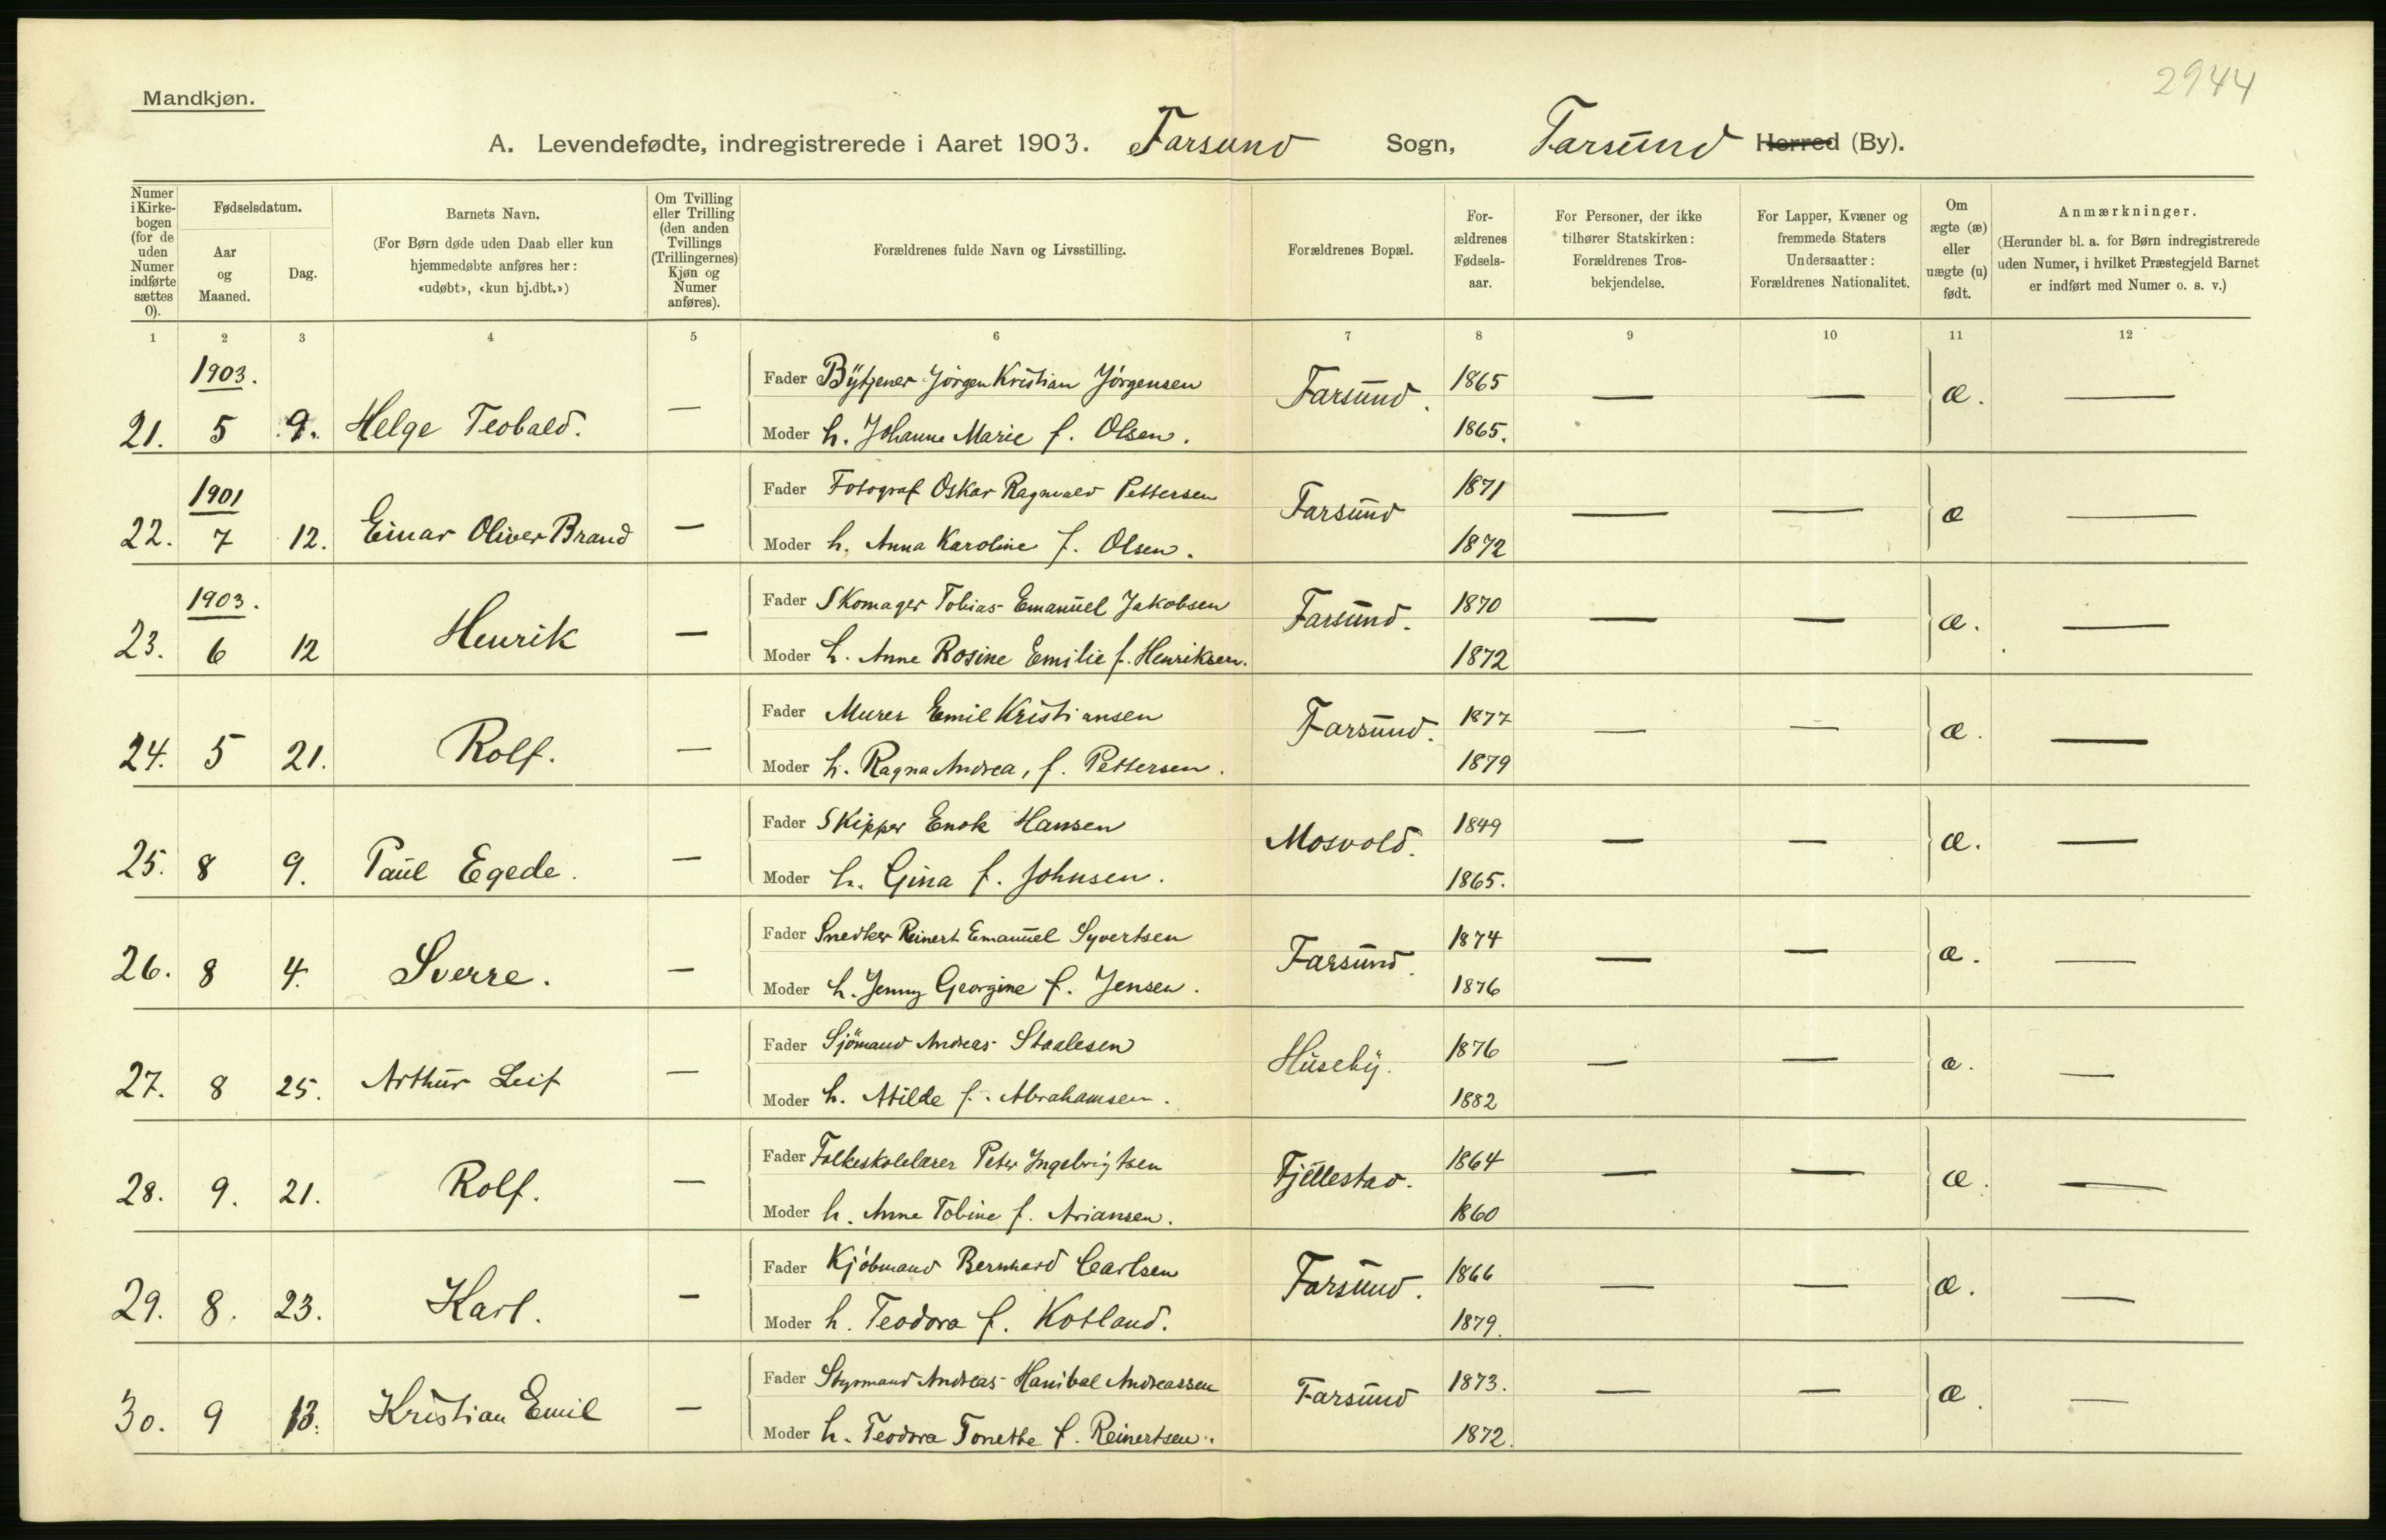 2944
Mandkjøn.
A. Levendefødte, indregistrerede i Aaret 1903. Farsund Sogn, Farsund Herred (By).
Numer i Kirkebogen (for de uden Numer indførte sættes 0).
Fødselsdatum.
Aar og Maaned.
Dag.
Barnets Navn.
(For Børn døde uden Daab eller kun hjemmedøbte anføres her: «udøbt», «kun hj.dbt.»)
Om Tvilling eller Trilling (den anden Tvillings (Trillingernes) Kjøn og Numer anføres).
Forældrenes fulde Navn og Livsstilling.
Forældrenes Bopæl.
For-ældrenes Fødsels-aar.
For Personer, der ikke tilhører Statskirken: Forældrenes Tros-bekjendelse.
For Lapper, Kvæner og fremmede Staters Undersaatter: Forældrenes Nationalitet.
Om ægte (æ) eller uægte (u) født.
Anmærkninger.
(Herunder bl. a. for Børn indregistrerede uden Numer, i hvilket Præstegjeld Barnet er indført med Numer o. s. v.)
1 2 3 4 5 6 7 8 9 10 11 12
1903.
Fader Bytjener Jörgen Kristian Jörgensen Farsund. 1865 — — æ. —
21. 5 9. Helge Teobald. — Moder h. Johanne Marie f. Olsen. 1865.
1901
Fader Fotograf Oskar Ragnvald Pettersen Farsund 1871 — — æ —
22. 7 12. Einar Oliver Brand — Moder h. Anna Karoline f. Olsen. 1872
1903.
Fader Skomager Tobias Emanuel Jakobsen Farsund. 1870 — — æ. —
23. 6 12 Henrik — Moder h. Anne Rosine Emilie f. Henriksen. 1872
Fader Murer Emil Kristiansen Farsund. 1877 — — æ. —
24. 5 21. Rolf. — Moder h. Ragna Andrea, f. Pettersen. 1879
Fader Skipper Enok Hansen Mosvold. 1849 — — æ. —
25. 8 9. Paul Egede. — Moder h. Gina f. Johnsen. 1865.
Fader Snedker Reinert Emanuel Syvertsen Farsund. 1874 — — æ. —
26. 8 4. Sverre. — Moder h. Jenny Georgine f. Jensen. 1876
Fader Sjömand Andreas Staalesen Huseby. 1876 — — æ. —
27. 8 25. Arthur Leif — Moder h. Atilde f. Abrahamsen. 1882
Fader Folkeskolelærer Peter Ingebrigtsen Fjellestad. 1864 — — æ. —
28. 9. 21. Rolf. — Moder h. Anne Tobine f. Ariansen. 1860
Fader Kjöbmand Bernhard Carlsen Farsund. 1866 — — æ. —
29. 8. 23. Karl. — Moder h. Teodora f. Kotland. 1879.
Fader Styrmand Andreas Hanibal Andreassen Farsund 1873. — — æ. —
30. 9 13. Kristian Emil — Moder h. Teodora Tonette f. Reinertsen. 1872.